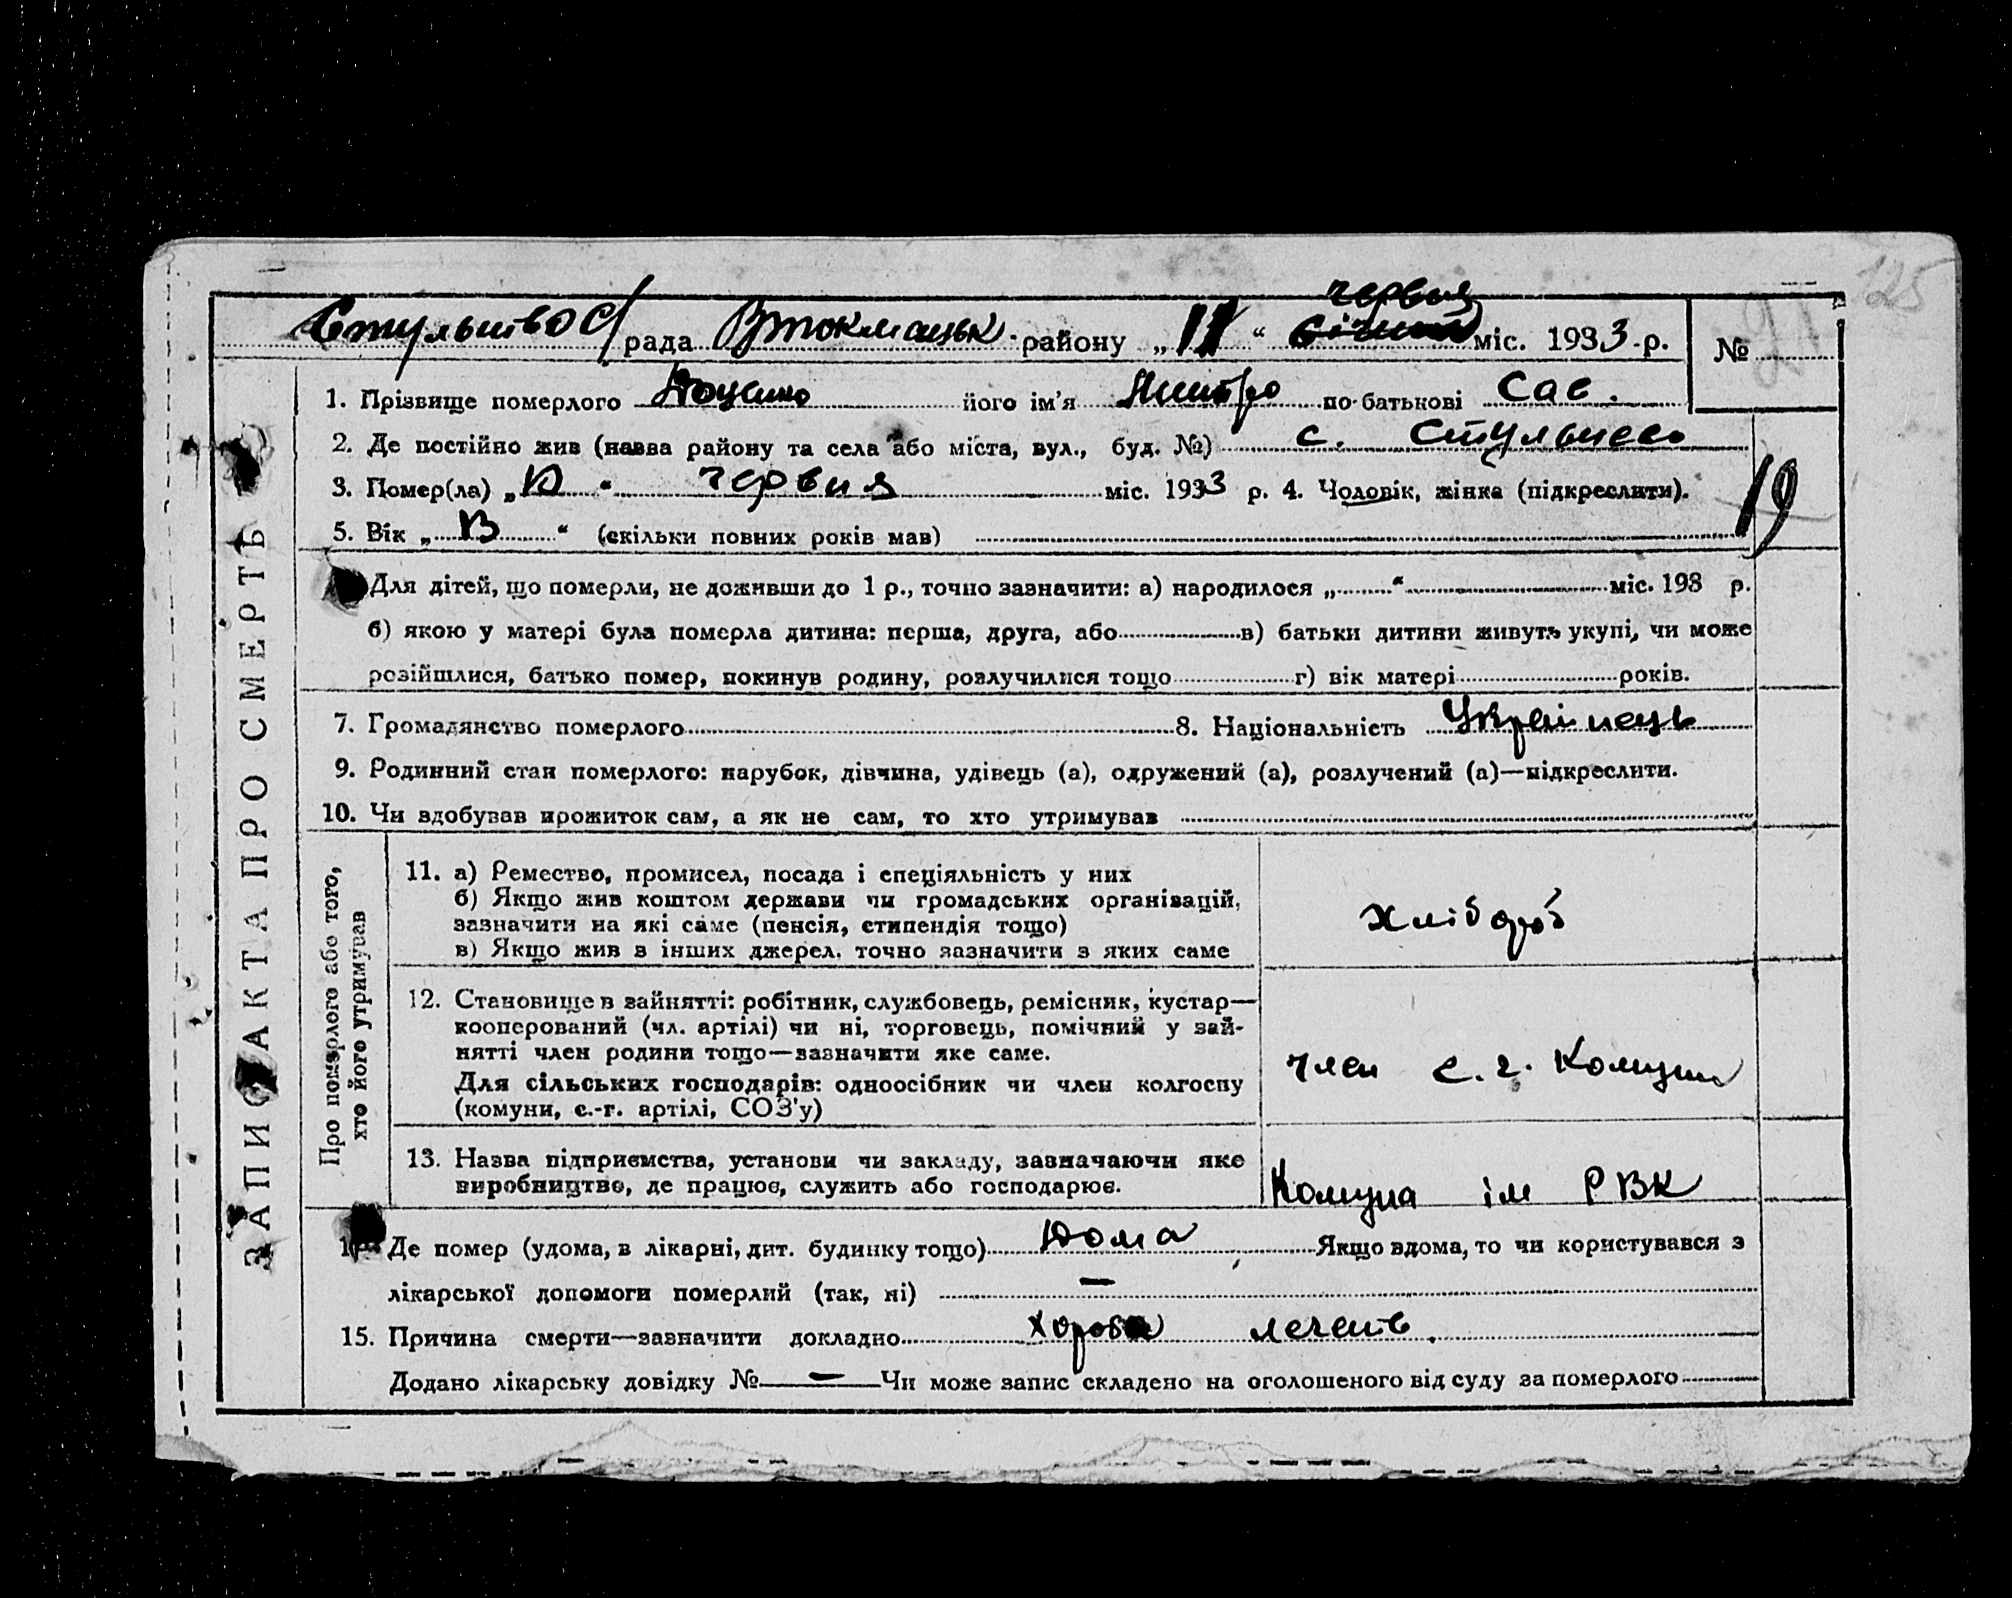 125
червня
рада Втокмацьк району „11“ січня міс. 1933 р. №
1. Прізвище померлого Доценко його ім'я Дмитро по-батькові Сав.
2. Де постійно жив (назва району та села або міста, вул., буд. №) с.
3. Помер(ла) „10“ червня міс. 1933 р. 4. Чоловік, жінка (підкреслити).
19
5. Вік „ “ (скільки повних років мав)
Для дітей, що померли, не доживши до 1 р., точно зазначити: а) народилося „ “ міс. 193 р.
б) якою у матері була померла дитина: перша, друга, або в) батьки дитини живуть укупі, чи може
розійшлися, батько помер, покинув родину, розлучилися тощо г) вік матері років.
7. Громадянство померлого 8. Національність Українець
9. Родинний стан померлого: парубок, дівчина, удівець (а), одружений (а), розлучений (а)—підкреслити.
10. Чи здобував прожиток сам, а як не сам, то хто утримував
ЗАПИС АКТА ПРО СМЕРТЬ
Про померлого або того,
хто його утримував
11. а) Ремество, промисел, посада і спеціяльність у них
б) Якщо жив коштом держави чи громадських організацій,
зазначити на які саме (пенсія, стипендія тощо)
в) Якщо жив з інших джерел, точно зазначити з яких саме
хлібороб
12. Становище в зайнятті: робітник, службовець, ремісник, кустар—
кооперований (чл. артілі) чи ні, торговець, помічний у зай-
нятті член родини тощо—зазначити яке саме.
Для сільських господарів: одноосібник чи член колгоспу
(комуни, с.-г. артілі, СОЗ'у)
член с. г. Комуни
13. Назва підприємства, установи чи закладу, зазначаючи яке
виробництво, де працює, служить або господарює.
Комуна ім РВК
Де помер (удома, в лікарні, дит. будинку тощо) Дома Якщо вдома, то чи користувався з
лікарської допомоги померлий (так, ні) —
15. Причина смерти—зазначити докладно хороба легенів.
Додано лікарську довідку № — Чи може запис складено на оголошеного від суду за померлого